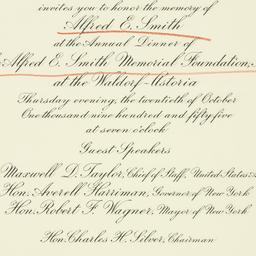 invites you to honor the memory of
Alfred E. Smith
at the Annual Dinner of
Alfred E. Smith Memorial Foundation,
at the Waldorf-Astoria
Thursday evening, the twentieth of October
One thousand nine hundred and fifty five
at seven o'clock
Guest Speakers
Maxwell D. Taylor, Chief of Staff, United States
Hon. Averell Harriman, Governor of New York
Hon. Robert F. Wagner, Mayor of New York
Hon. Charles H. Silver, Chairman